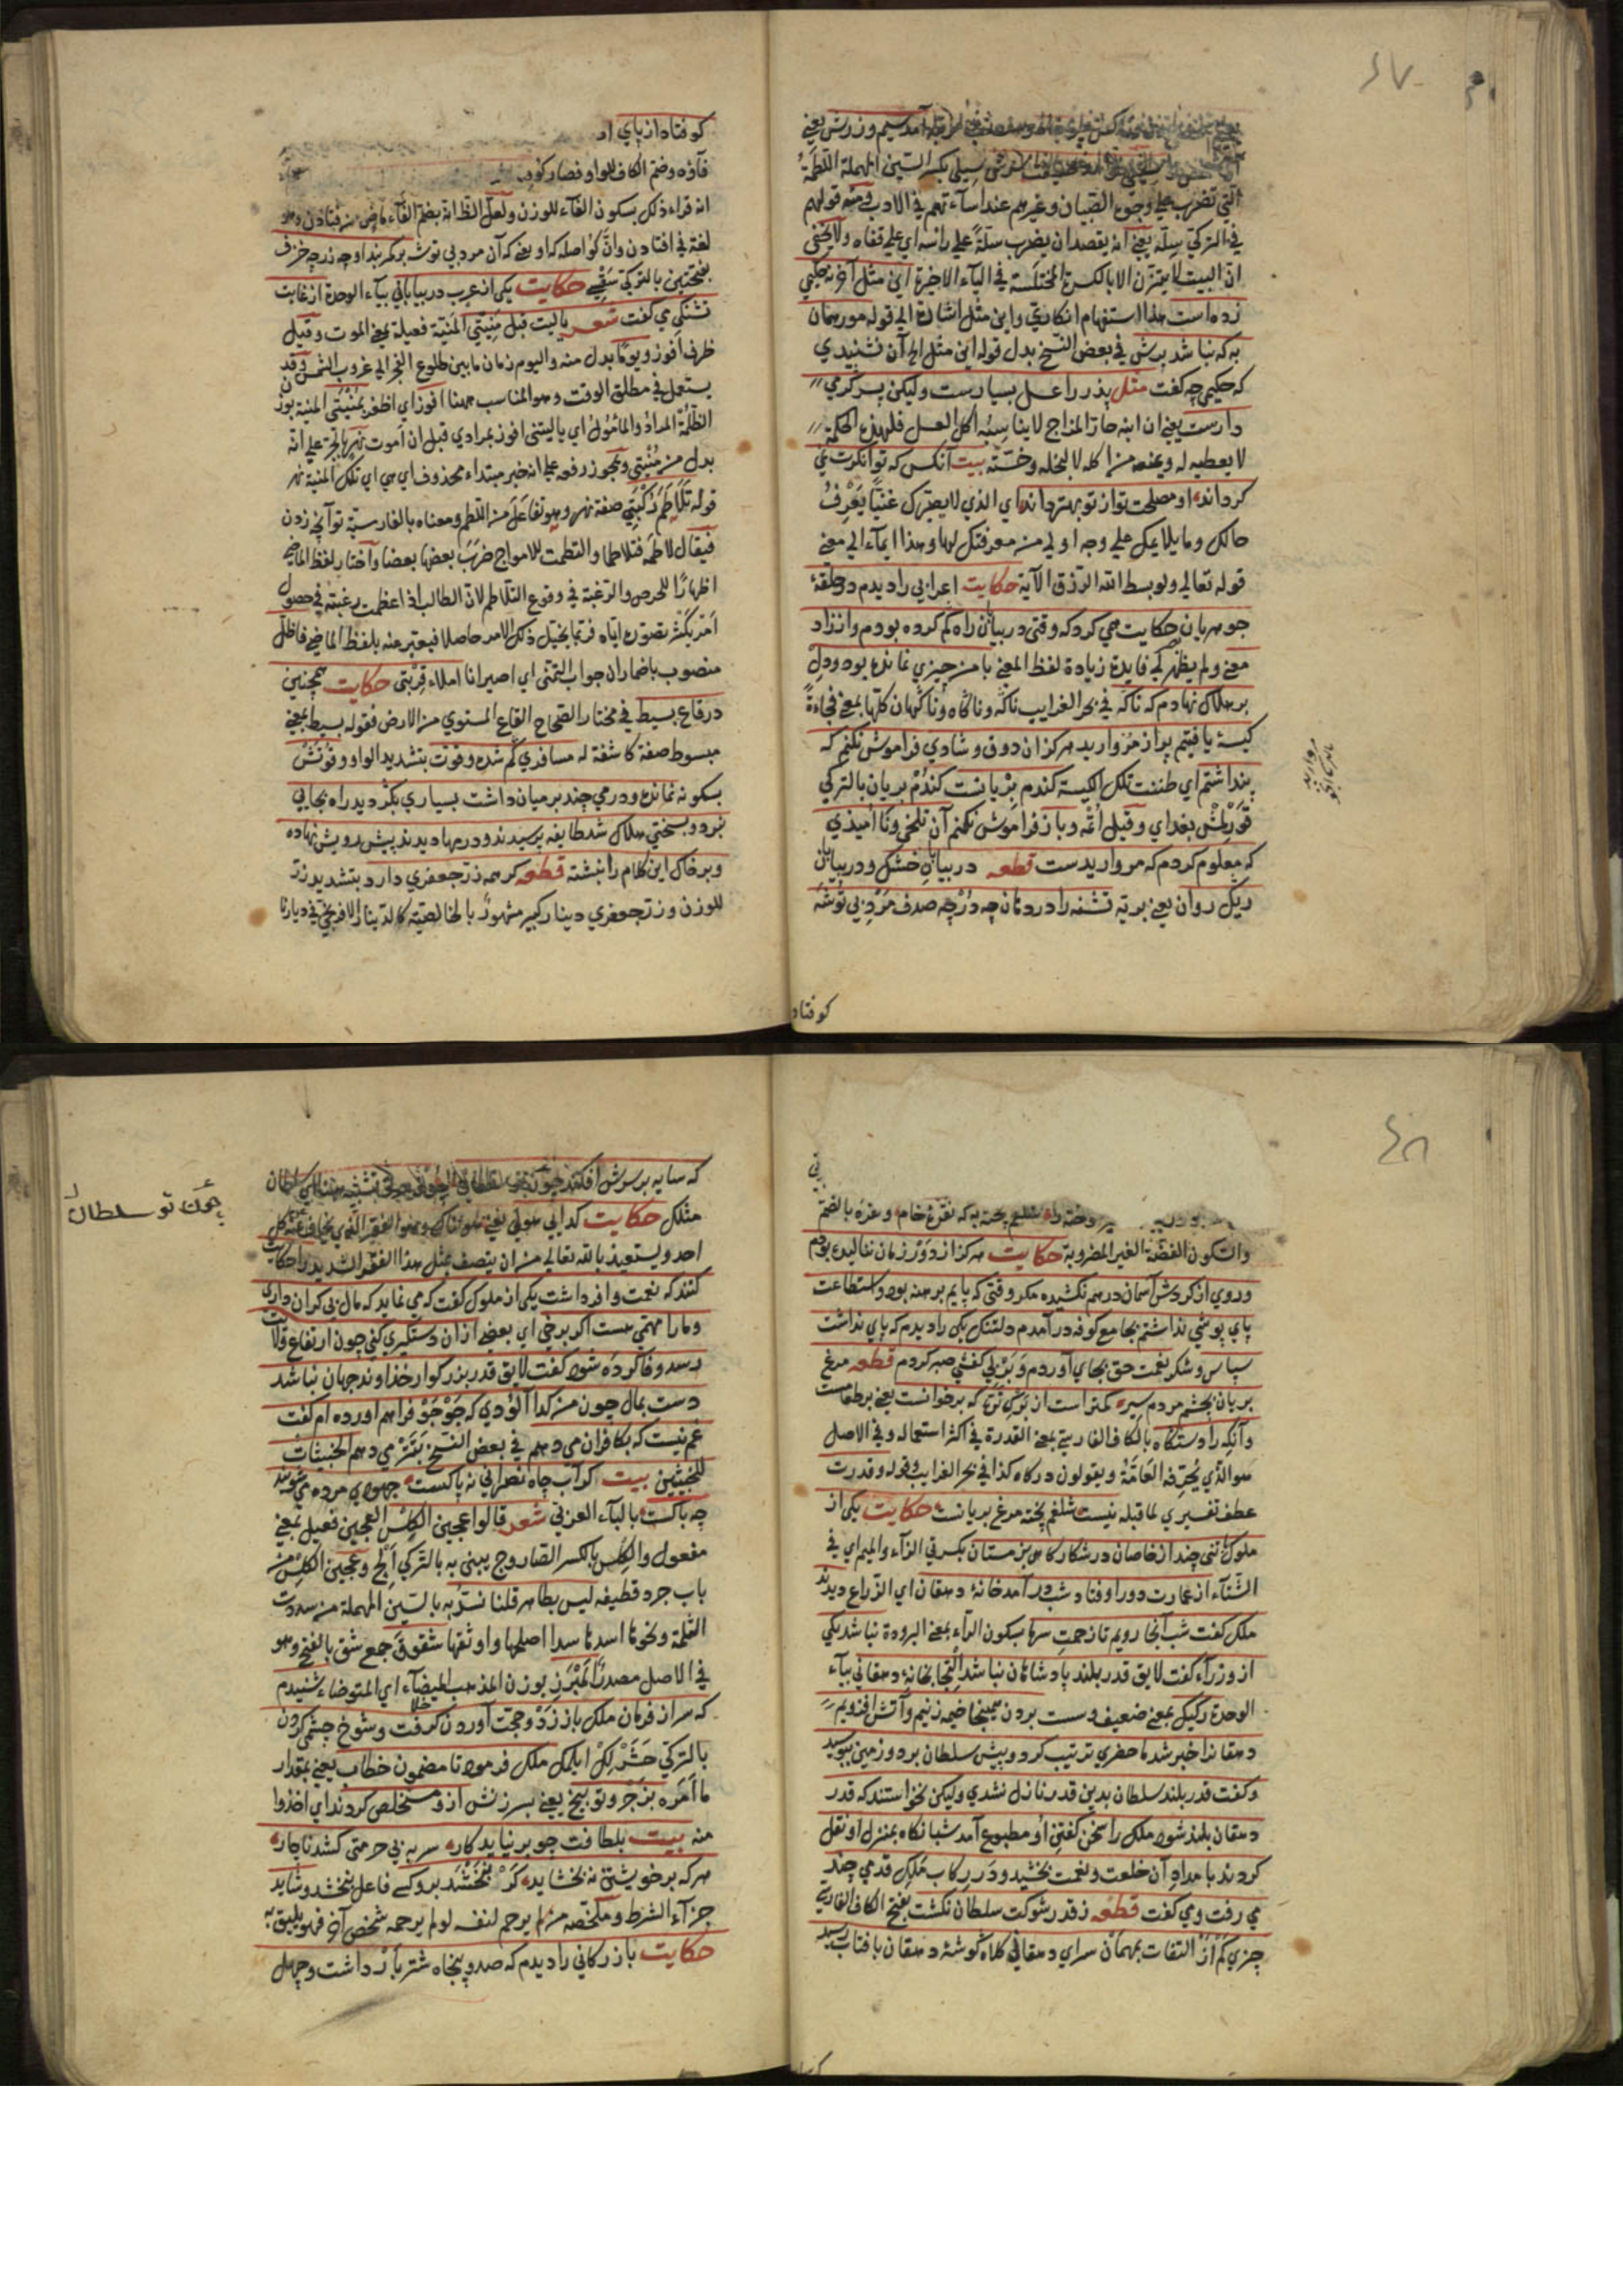 ٤٧
سیم و زرش یعنی
سیلی بکسر السین المهملة اللطمة
التی تضرب علی وجوه الصبیان و غیرهم عند اساءتهم فی الادب و منه قولهم
فی الترکی سله یعنی انه یقصد ان یضرب سلة علی راسه ای علی قفاه ولا یخفی
ان البیت لا یتزن الا بالکسرة المختلسة فی الیاء الاخیرة این مثل آخر نه حکیمی
زده است هذا استفهام انکاری و این مثل اشارة الی قوله مور همان
به که نباشد پرش فی بعض النسخ بدل قوله این مثل الخ آن نشنیدی
که حکیمی چه گفت مثل پدر را عسل بسیارست ولیکن پسر گرمی
دارست یعنی ان ابنه حار المزاج لا یناسبه اکل العسل فلهذه الحکمة
لا یعطیه له و یمنعه من اکله لا لبخله و خسته بیت آنکس که توانگرت نمی
گرداند او مصلحت تو از تو بهتر داند ای الذی لا یصیرک غنیا یعرف
حالک و ما یلایمک علی وجه اولی من معرفتک لها و هذا ایماء الی معنی
قوله تعالی ولو بسط الله الرزق الآیة حکایت اعرابی را دیدم در حلقهٔ
جوهریان حکایت همی کرد که وقتی در بیابان راه گم کرده بودم و از زاد
معنی و لم یظهر لی فایدة زیادة لفظ المعنی با من چیزی نمانده بود و دل
بر هلاک نهادم که ناگه فی بحر الغرایب ناگه و ناگاه و ناگهان کلها بمعنی فجاءة
کیسهٔ یافتم پر از مروارید هرگز آن ذوق و شادی فراموش نکنم که
پنداشتم ای ظننت تلک الکیسة گندم بریانست گندم بریان بالترکی
قورلمش بغدای و قیل اتمه و باز فراموش نکنم آن تلخی و ناامیدی
که معلوم کردم که مرواریدست قطعه در بیابان خشک و در بیابان
ریگ روان یعنی بریه تشنه را در دهان چه در چه صدف مرد بی توشه
کو فتاد
کو فتاد از پای از
فآؤه و ضم الکاف للواو فصار کوف
انه قراء ذلک بسکون الفاء للوزن و لعل الظ انه بضم الفاء ماض من فتادن و هو
لغة فی افتادن و ان کو اصله که او یعنی که آن مرد بی توشه بر کمربند او چه زر چه خزف
بفتحتین بالترکی سقسی حکایت یکی از عرب در بیابانی بیاء الوحدة از غایت
تشنگی می گفت شعر یا لیت قبل منیتی المنیة فعیلة بمعنی الموت و قیل
ظرف افوز و یوما بدل منه و الیوم زمان ما بین طلوع الفجر الی غروب الشمس و قد
یستعمل فی مطلق الوقت و هو المناسب ههنا افوز ای اظفر بمنیتی المنیة بوزن
الظلمة المراد و المأمول ای یا لیتنی افوز بمرادی قبل ان اموت نهر بالجر علی انه
بدل من منیتی و یجوز رفعه علی انه خبر مبتداء محذوف ای هی ای تلک المنیة نهر
قوله تلاطم رکبتی صفة نهر و هو تفاعل من اللطم و معناه بالفارسیة تو آنچه زدن
فیقال لاطمه فتلاطما و التطمت الامواج ضرب بعضها بعضا و اختار لفظ الماضی
اظهارا للحرص و الرغبة فی وقوع التلاطم لان الطالب اذا عظمت رغبته فی حصول
امر یکثر تصوره ایاه فربما یخیل ذلک الامر حاصلا فیعبر عنه بلفظ الماضی فاظل
منصوب باضمار ان جواب التمنی ای اصیر انا املاء قربتی حکایت همچنین
در قاع بسیط فی مختار الصحاح القاع المستوی من الارض فقوله بسیط بمعنی
مبسوط صفة کاشفة له مسافری گم شده و قوت بتشدید الواو و قوتش
بسکونه نمانده و درمی چند بر میان داشت بسیاری بگردید راه بجایی
نبرد و بسختی هلاک شد طایفه برسیدند و درمها دیدند پیش رویش نهاده
و بر خاک این کلام را نبشته قطعه گر همه زر جعفری دارد بتشدید زر
للوزن و زر جعفری دینار کبیر مشهور بالخالصیة کالدینار الافرنجی فی دیارنا
٤٨
سوخته را شلغم پخته به که نقرهٔ خام و نقره بالضم
والسکون الفضة الغیر المضروبة حکایت هرگز از دور زمان ننالیده بودم
و روی از گردش آسمان در هم نکشیده مگر وقتی که پایم برهنه بود و استطاعت
پای پوشی نداشتم بجامع کوفه در آمدم دلتنگ یکی را دیدم که پای نداشت
سپاس و شکر نعمت حق بجای آوردم و بر بی کفشی صبر کردم قطعه مرغ
بریان بچشم مردم سیر کمتر است از برگ تره که بر خوانست یعنی بر طعامست
و آنکه را دستگاه بالکاف الفارسیة بمعنی القدرة فی اکثر استعماله و فی الاصل
هو الذی یحرفه العامة و یقولون درکاه کذا فی بحر الغرایب و قوله و قدرت
عطف تفسیری لما قبله نیست شلغم پخته مرغ بریانست حکایت یکی از
ملوک با تنی چند از خاصان در شکارگاهی بزمستان بکسرتی الزاء و المیم ای فی
الشتاء از عمارت دور اوفتاد شب در آمد خانهٔ دهقان ای الزراع دیدند
ملک گفت شب آنجا رویم تا زحمت سرما بسکون الراء بمعنی البرودة نباشد یکی
از وزراء گفت لایق قدر بلند پادشاهان نباشد التجا بخانهٔ دهقانی بیاء
الوحدة رکیک بمعنی ضعیف و سست بردن همینجا خیمه زنیم و آتش افروزیم
دهقانرا خبر شد ما حضری ترتیب کرد و پیش سلطان برد و زمین ببوسید
و گفت قدر بلند سلطان بدین قدر نازل نشدی ولیکن نخواستند که قدر
دهقان بلند شود ملک را سخن گفتن او مطبوع آمد شبانگاه بمنزل او نقل
کردند بامداد آن خلعت و نعمت بخشید و در رکاب ملک قدمی چند
می رفت و می گفت قطعه ز قدر شوکت سلطان نگشت بفتح الکاف الفارسی
چیزی کم از التفات بمهمان سرای دهقانی کلاه گوشهٔ دهقان بآفتاب رسید
که سایه بر سرش افکند چون تو سلطانی
چون تو سلطان
مثلک حکایت گدایی هولی یعنی هولناک و هو الفقیر الذی یخاف عنه کل
احد و یستعیذ بالله تعالی من ان یتصف بمثل هذا الفقر الشدید را حکایت
کنند که نعمت وافر داشت یکی از ملوک گفت که می نماید که مال بی کران داری
و ما را مهمی هست اگر برخی ای بعضی از آن دستگیری کنی چون ارتفاع ولایت
رسد وفا کرده شود گفت لایق قدر بزرگوار خداوند جهان نباشد
دست بمال چون من گدا آلودی که جو جو فراهم آورده ام گفت
غم نیست که بکافران می دهم فی بعض النسخ بتتر می دهم الخبیثات
للخبیثین بیت گر آب چاه نصرانی نه پاکست جهودی مرده می شویند
چه باکست بالباء العربی شعر قالوا عجین الکلس العجین فعیل بمعنی
مفعول و الکلس بالکسر الصاروج یبنی به بالترکی الج و عجین الکلس من
باب جرد قطیفه لیس بطاهر قلنا نسد به بالسین المهملة من سددت
الثلمة و نحوها اسدها سدا اصلحها و اوثقها شقوق جمع شق بالفتح و هو
فی الاصل مصدر المبرز بوزن المذهب المیضاء ای المتوضاء شنیدم
که سر از فرمان ملک باز زد و حجت آوردن گرفت و شوخ چشمی کردن
بالترکی حشرلک ایلمک ملک فرمود تا مضمون خطاب یعنی بمقدار
ما امره بزجر و توبیخ یعنی بسرزنش از و مستخلص کردند ای اخذوا
منه بیت بلطافت چو بر نیاید کار سر به بی حرمتی کشد ناچار
هر که بر خویشتن نه بخشاید گر نبخشد برو کسی فاعل نبخشد و شاید
جزآء الشرط و ملخصه من لم یرحم لنفسه لو لم یرحمه شخص آخر فهو یلیق به
حکایت بازرگانی را دیدم که صد و پنجاه شتر بار داشت و چهل